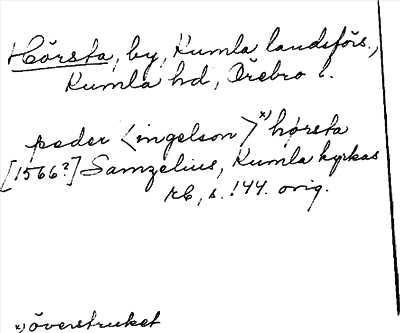 Hörsta, by, Kumla landsförs.,
Kumla hd, Örebro l.
peder <ingelson>x) hørsta
[1566?] Samzelius, Kumla kyrkas
rb, s. 144. orig.
x) överstruket